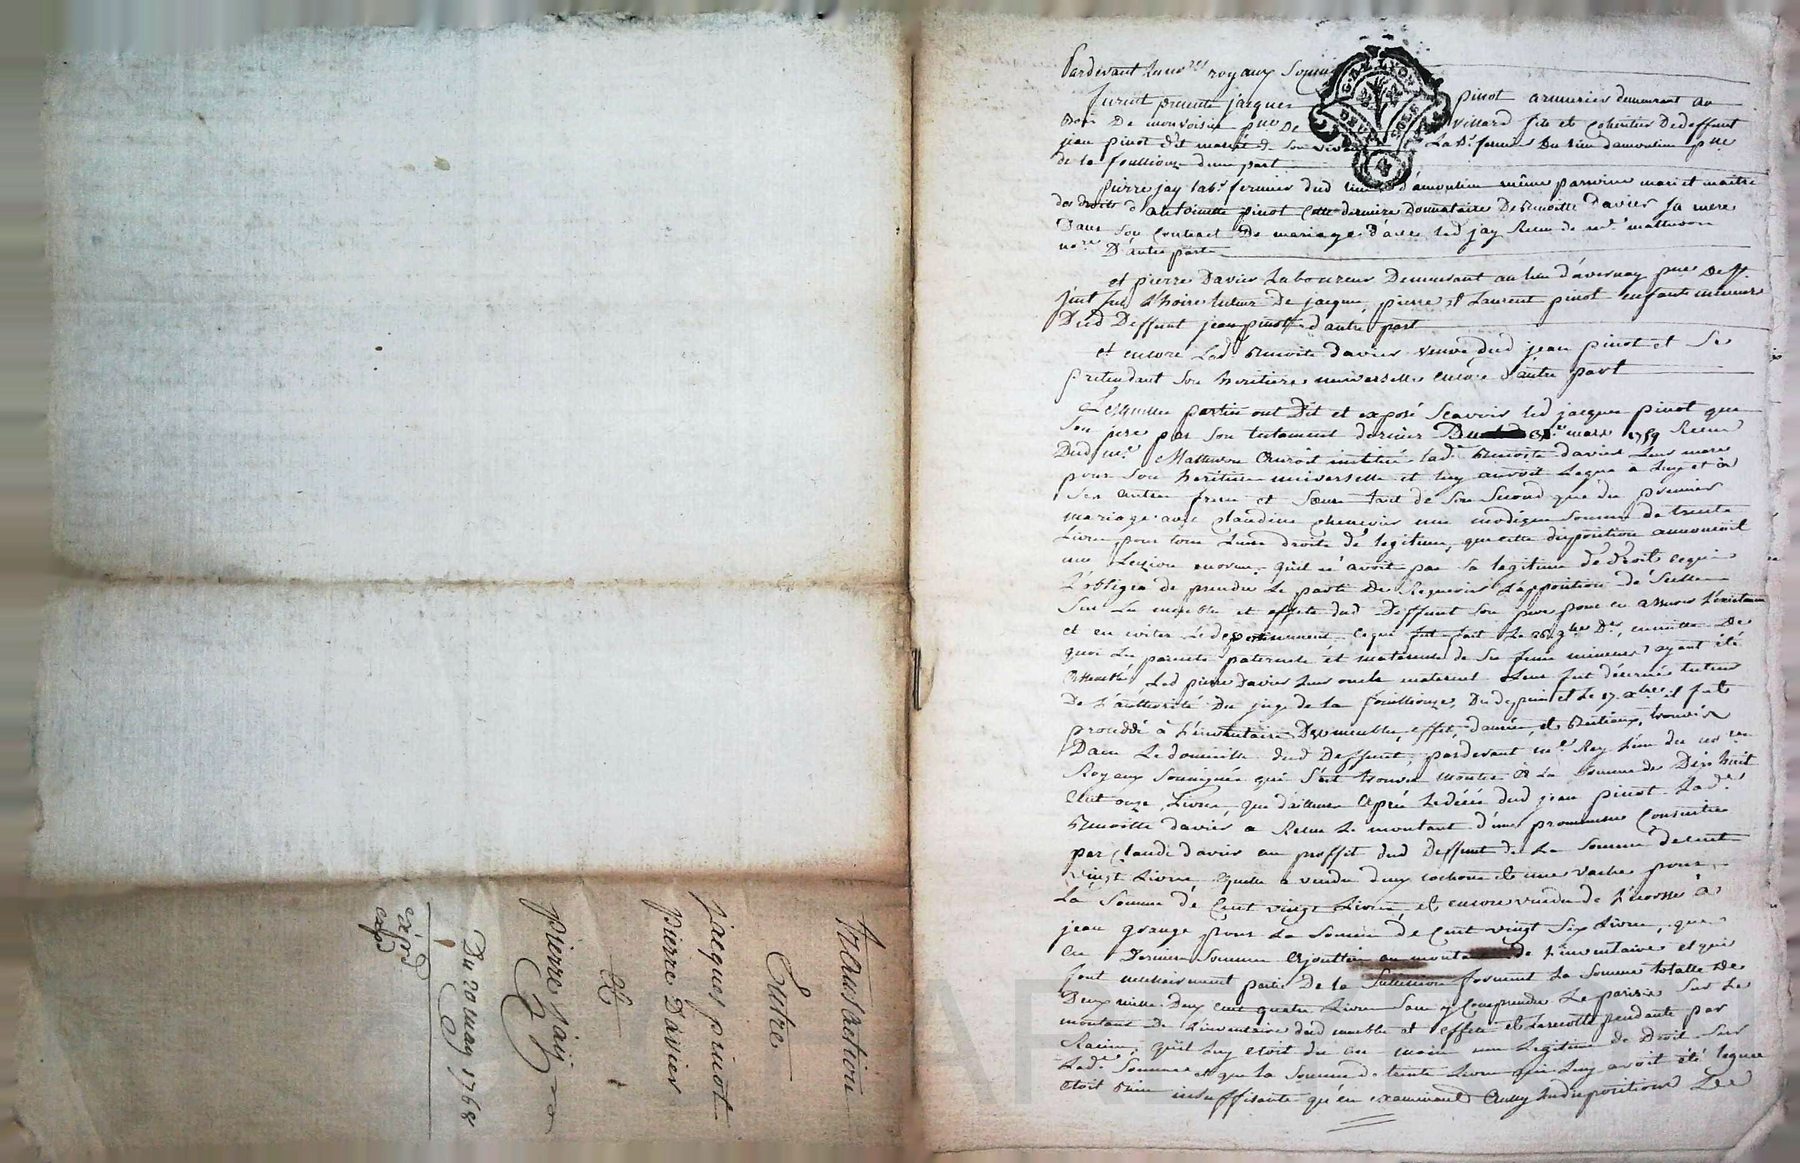 Transaction
Entre
jacques pinot
pierre Davier
&
pierre jaij
Du 20 may 1768
expé
expé
G. DE LYON
DEUX SOLS
4
Pardevant Les nores royaux Sous
furent presents jacques pinot armurier demeurant au
Bois De monvoisin psse De Villard fils et cohéritier De deffunt
jean pinot dit de Son vivant La Br fermier Du lieu damoulin psse
de la foullioux dune part
pierre jay labr fermier dud lieu d'amoulin même paroisse mari et maitre
des droits d'antoinette pinot cette derniere Donnataire De Benoitte Davier Sa mere
Dans Son Contract De mariage Davec led jay Reçu de me matheron
nore D'autre part
et pierre Davier Laboureur Demeurant au lieu d'avernay psse De St
just tuteur De jacques, pierre et Laurent pinot enfants mineurs
Dud Deffunt jean pinot d'autre part
et encore Lad Benoite davier veuve dud jean pinot et Se
pretendant Son heritiere universelle encore d'autre part
Lesquelles parties ont Dit et exposé Scavoir led jacques pinot que
Son pere par Son testament dernier Du mars 1759 Reçu
Dud me Matheron auroit institué lad Benoite davier Leur mere
pour Son heritiere universelle et luy auroit Legué à luy et à
Ses autres freres et Sœurs tant de Son Second que du premier
mariage avec claudine chenevier une modique Somme de trente
Livres pour tous Leurs droits de legitime, que cette disposition annoncoit
une Lezion enorme, qu'il n'avoit pas Sa legitime de droit ce qui
L'obligea de prendre Le parti De Requerir L'apposition de Scellés
Sur Les meubles et effets dud Deffunt Son pere pour en assurer L'existance
et en eviter Le deperissement, ce qui fut fait Le 26 9bre Dr, ensuitte De
quoi Les parents paternels et maternels de Ses freres mineurs ayant été
assemblés, Led pierre Davier Leur oncle maternel Leur fut décerné tuteur
De L'authorité Du juge de la fouillouze, Du depuis et Le 17 xbre il fut
procédé à L'inventaire Des meubles, effets, danrées, et Bestiaux, trouvés
Dans Le domicille dud Deffunt, pardevant me Rey L'un des nores
Royaux Soussignés qui S'est trouvé monter à La Somme de Dix huit
Cent onze Livres, que d'ailleurs après Le décés dud jean pinot Lad
Benoitte davier a Reçu Le montant d'une promesse Consentie
par Claude davier au proffit dud Deffunt de La Somme de cent
vingt Livres, quelle a vendu deux cochons et une vache pour
La Somme de Cent vingt Livres, et encore vendu de L'écorsse à
jean grange pour La Somme de Cent vingt Six Livres, que
Ces Dernieres Sommes ajouttées au montant de L'inventaire et qui
font necessairement partie De la Succession forment La Somme totalle De
Deux mille Deux cent quatre Livres Sans y Comprendre Le parisis Sur Le
montant De L'inventaire dud meubles et effets et La recolte pendante par
Racine; qu'il Luy etoit du au moins une Legitime De Droit Sur
Lad Somme et que la Somme de trente Livres qui Luy avoit été leguée
Etoit bien insuffisante qu'en examinant aussy Les dispositions Des